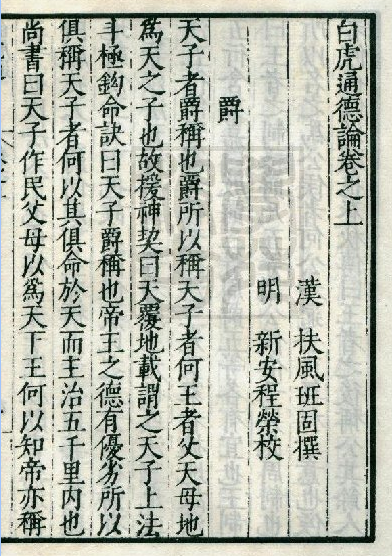 白虎通德論卷之上
漢 扶風班固撰
明 新安程榮校
爵
天子者爵稱也爵所以稱天子者何王者父天母地
爲天之子也故援神契曰天覆地載謂之天子上法
斗極鈎命訣曰天子爵稱也帝王之德有優劣所以
俱稱天子者何以其俱命於天而主治五千里内也
尚書曰天子作民父母以爲天下王何以知帝亦稱